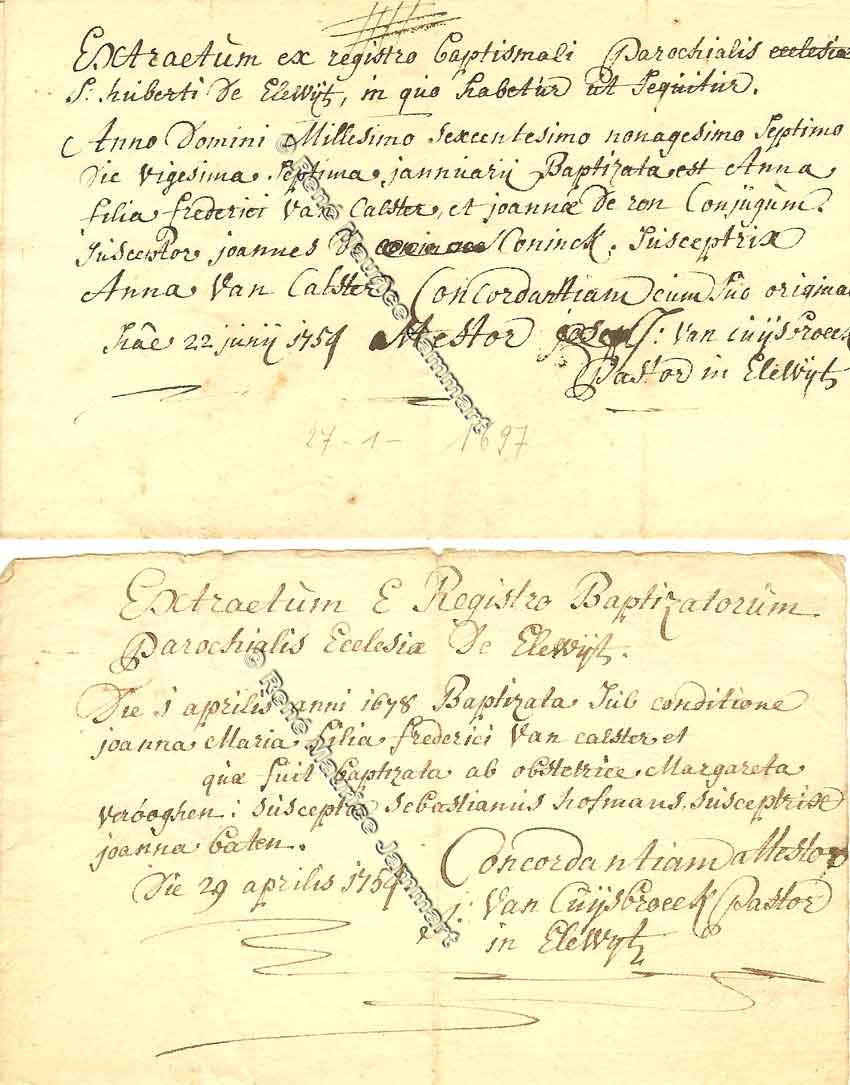 Extractum ex registro baptismali parochialis ecclesiæ
S: huberti De Elewÿt, in quo habetur ut sequitur.
Anno Domini Millesimo sexcentesimo nonagesimo septimo
Die vigesima septima januuarij Baptizata est Anna
filia frederici Van Calster, et joannæ De ron Conjugum.
susceptor joannes De Coninck. susceptrix
Anna Van Calster Concordantiam cum suo origina
hâc 22 junij 1759 Attestor : Van Cuÿsbroeck
Pastor in Elewÿt
27-1- 1697
© René Maurice Jammart
Extractum E Registro Baptizatorum
Parochialis Ecclesiæ De Elewÿt.
Die 1 aprilis anni 1678 Baptizata sub conditione
joanna Maria filia frederici Van calster et
quæ fuit baptizata ab obstetrice Margareta
verooghen: susceptor Sebastianus hofmans, susceptrix
joanna baten.
Concordantiam attestor
Die 29 aprilis 1759
j: Van Cuÿsbroeck Pastor
in Elewÿt
© René Maurice Jammart